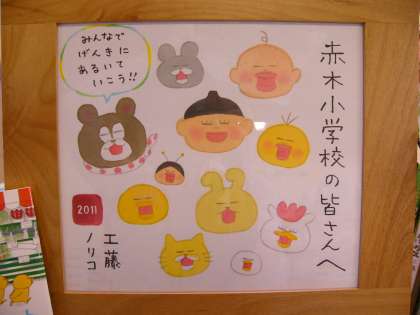 赤木小学校の皆さんへ
みんなで
げんきに
あるいて
いこう!!
2011
工藤
ノリコ